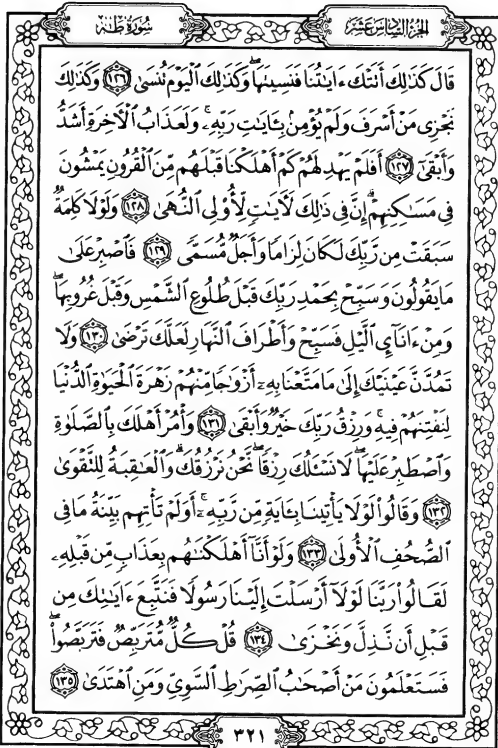 الجزء السادس عشر
سورة طه
قَالَ كَذَٰلِكَ أَتَتْكَ ءَايَٰتُنَا فَنَسِيتَهَا ۖ وَكَذَٰلِكَ ٱلْيَوْمَ تُنسَىٰ ١٢٦ وَكَذَٰلِكَ
نَجْزِى مَنْ أَسْرَفَ وَلَمْ يُؤْمِنۢ بِـَٔايَٰتِ رَبِّهِۦ ۚ وَلَعَذَابُ ٱلْأَخِرَةِ أَشَدُّ
وَأَبْقَىٰ ١٢٧ أَفَلَمْ يَهْدِ لَهُمْ كَمْ أَهْلَكْنَا قَبْلَهُم مِّنَ ٱلْقُرُونِ يَمْشُونَ
فِى مَسَٰكِنِهِمْ ۗ إِنَّ فِى ذَٰلِكَ لَأَيَٰتٍ لِّأُو۟لِى ٱلنُّهَىٰ ١٢٨ وَلَوْلَا كَلِمَةٌ
سَبَقَتْ مِن رَّبِّكَ لَكَانَ لِزَامًا وَأَجَلٌ مُّسَمًّى ١٢٩ فَٱصْبِرْ عَلَىٰ
مَا يَقُولُونَ وَسَبِّحْ بِحَمْدِ رَبِّكَ قَبْلَ طُلُوعِ ٱلشَّمْسِ وَقَبْلَ غُرُوبِهَا ۖ
وَمِنْ ءَانَآئِ ٱلَّيْلِ فَسَبِّحْ وَأَطْرَافَ ٱلنَّهَارِ لَعَلَّكَ تَرْضَىٰ ١٣٠ وَلَا
تَمُدَّنَّ عَيْنَيْكَ إِلَىٰ مَا مَتَّعْنَا بِهِۦٓ أَزْوَٰجًا مِّنْهُمْ زَهْرَةَ ٱلْحَيَوٰةِ ٱلدُّنْيَا
لِنَفْتِنَهُمْ فِيهِ ۚ وَرِزْقُ رَبِّكَ خَيْرٌ وَأَبْقَىٰ ١٣١ وَأْمُرْ أَهْلَكَ بِٱلصَّلَوٰةِ
وَٱصْطَبِرْ عَلَيْهَا ۖ لَا نَسْـَٔلُكَ رِزْقًا ۖ نَّحْنُ نَرْزُقُكَ ۗ وَٱلْعَٰقِبَةُ لِلتَّقْوَىٰ
١٣٢ وَقَالُوا۟ لَوْلَا يَأْتِينَا بِـَٔايَةٍ مِّن رَّبِّهِۦٓ ۚ أَوَلَمْ تَأْتِهِم بَيِّنَةُ مَا فِى
ٱلصُّحُفِ ٱلْأُولَىٰ ١٣٣ وَلَوْ أَنَّآ أَهْلَكْنَٰهُم بِعَذَابٍ مِّن قَبْلِهِۦ
لَقَالُوا۟ رَبَّنَا لَوْلَآ أَرْسَلْتَ إِلَيْنَا رَسُولًا فَنَتَّبِعَ ءَايَٰتِكَ مِن
قَبْلِ أَن نَّذِلَّ وَنَخْزَىٰ ١٣٤ قُلْ كُلٌّ مُّتَرَبِّصٌ فَتَرَبَّصُوا۟ ۖ
فَسَتَعْلَمُونَ مَنْ أَصْحَٰبُ ٱلصِّرَٰطِ ٱلسَّوِىِّ وَمَنِ ٱهْتَدَىٰ ١٣٥
٣٢١